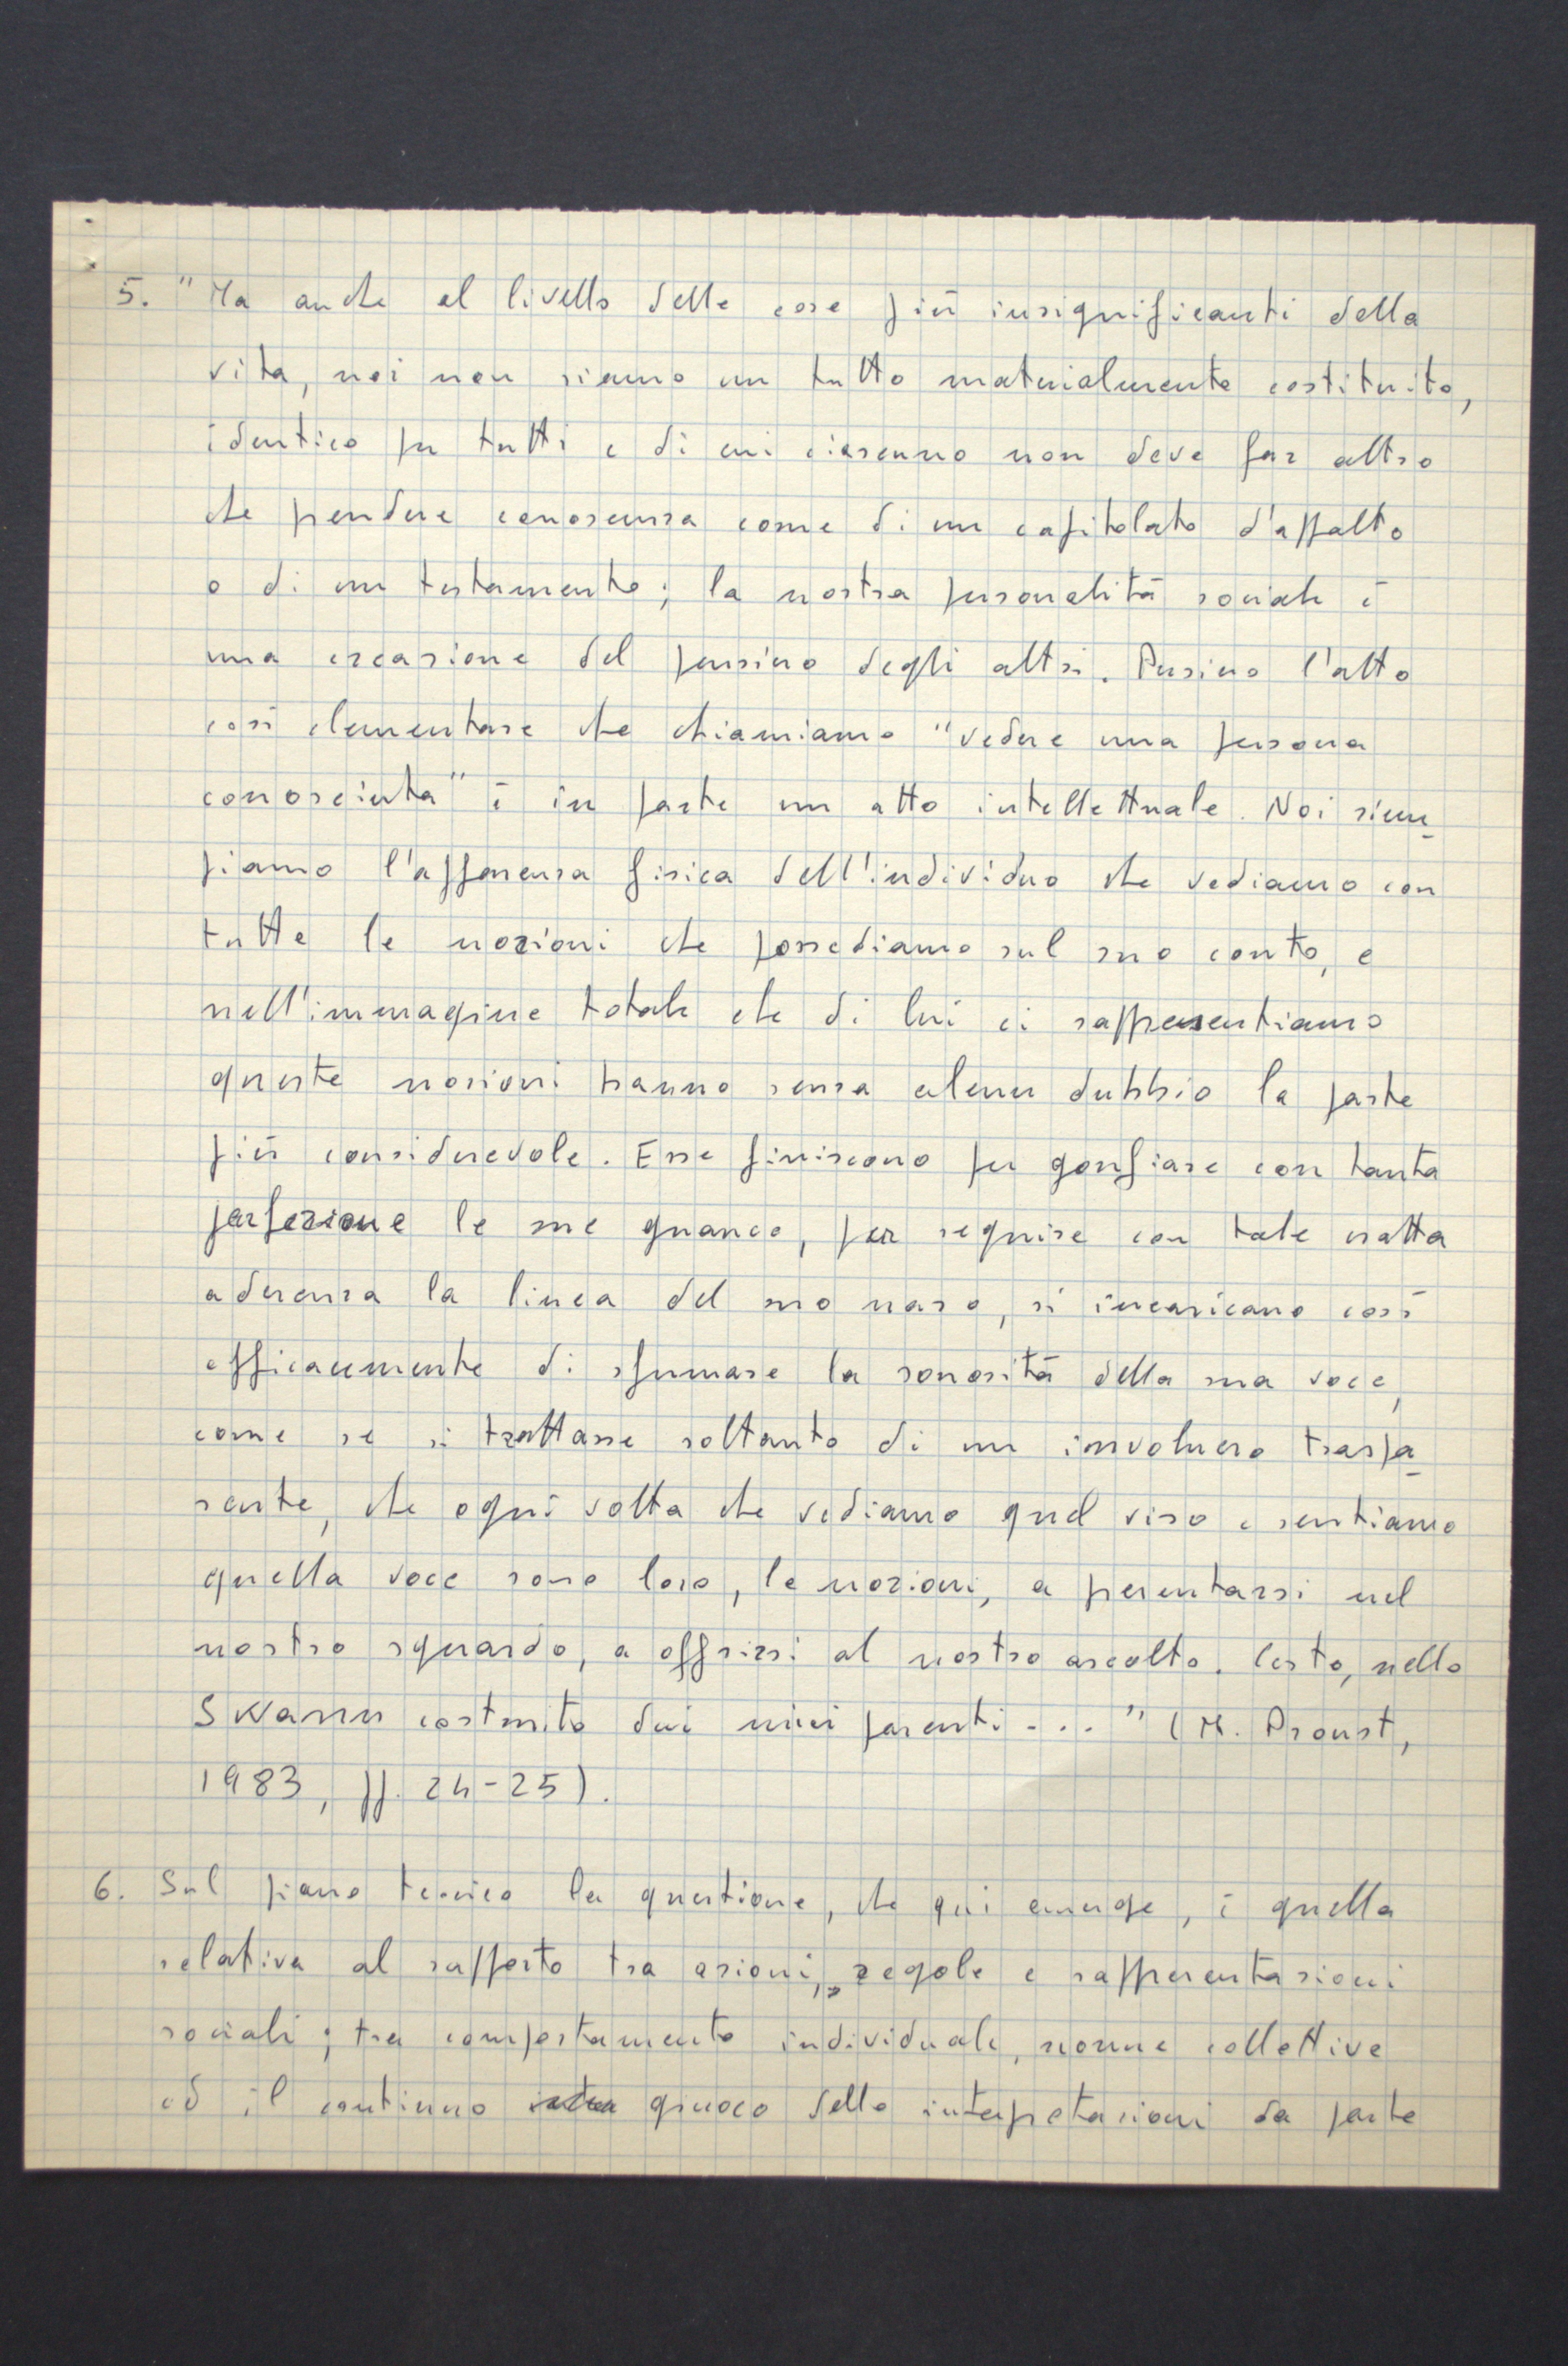 5. "Ma anche al livello delle cose più insignificanti della
vita, noi non siamo un tutto materialmente costituito,
identico per tutti e di cui ciascuno non deve far altro
che prendere conoscenza come di un capitolato d'appalto
o di un testamento; la nostra personalità sociale è
una creazione del pensiero degli altri. Persino l'atto
così elementare che chiamiamo "vedere una persona
conosciuta" è in parte un atto intellettuale. Noi riem-
piamo l'apparenza fisica dell'individuo che vediamo con
tutte le nozioni che possediamo sul suo conto, e
nell'immagine totale che di lui ci rappresentiamo
queste nozioni hanno senza alcun dubbio la parte
più considerevole. Esse finiscono per gonfiare con tanta
perfezione le sue guance, per seguire con tale esatta
aderenza la linea del suo naso, si incaricano così
efficacemente di sfumare la sonorità della sua voce,
come se si trattasse soltanto di un involucro traspa-
rente, che ogni volta che vediamo quel viso e sentiamo
quella voce sono loro, le nozioni, a presentarsi nel
nostro sguardo, a offrirsi al nostro ascolto. Certo, nello
Swann costruito dai miei parenti . . . " (M. Proust,
1983, pp. 24-25).
6. Sul piano tecnico la questione, che qui emerge, è quella
relativa al rapporto tra azioni, regole e rappresentazioni
sociali; tra comportamento individuale, norme collettive
ed il continuo giuoco delle interpretazioni da parte